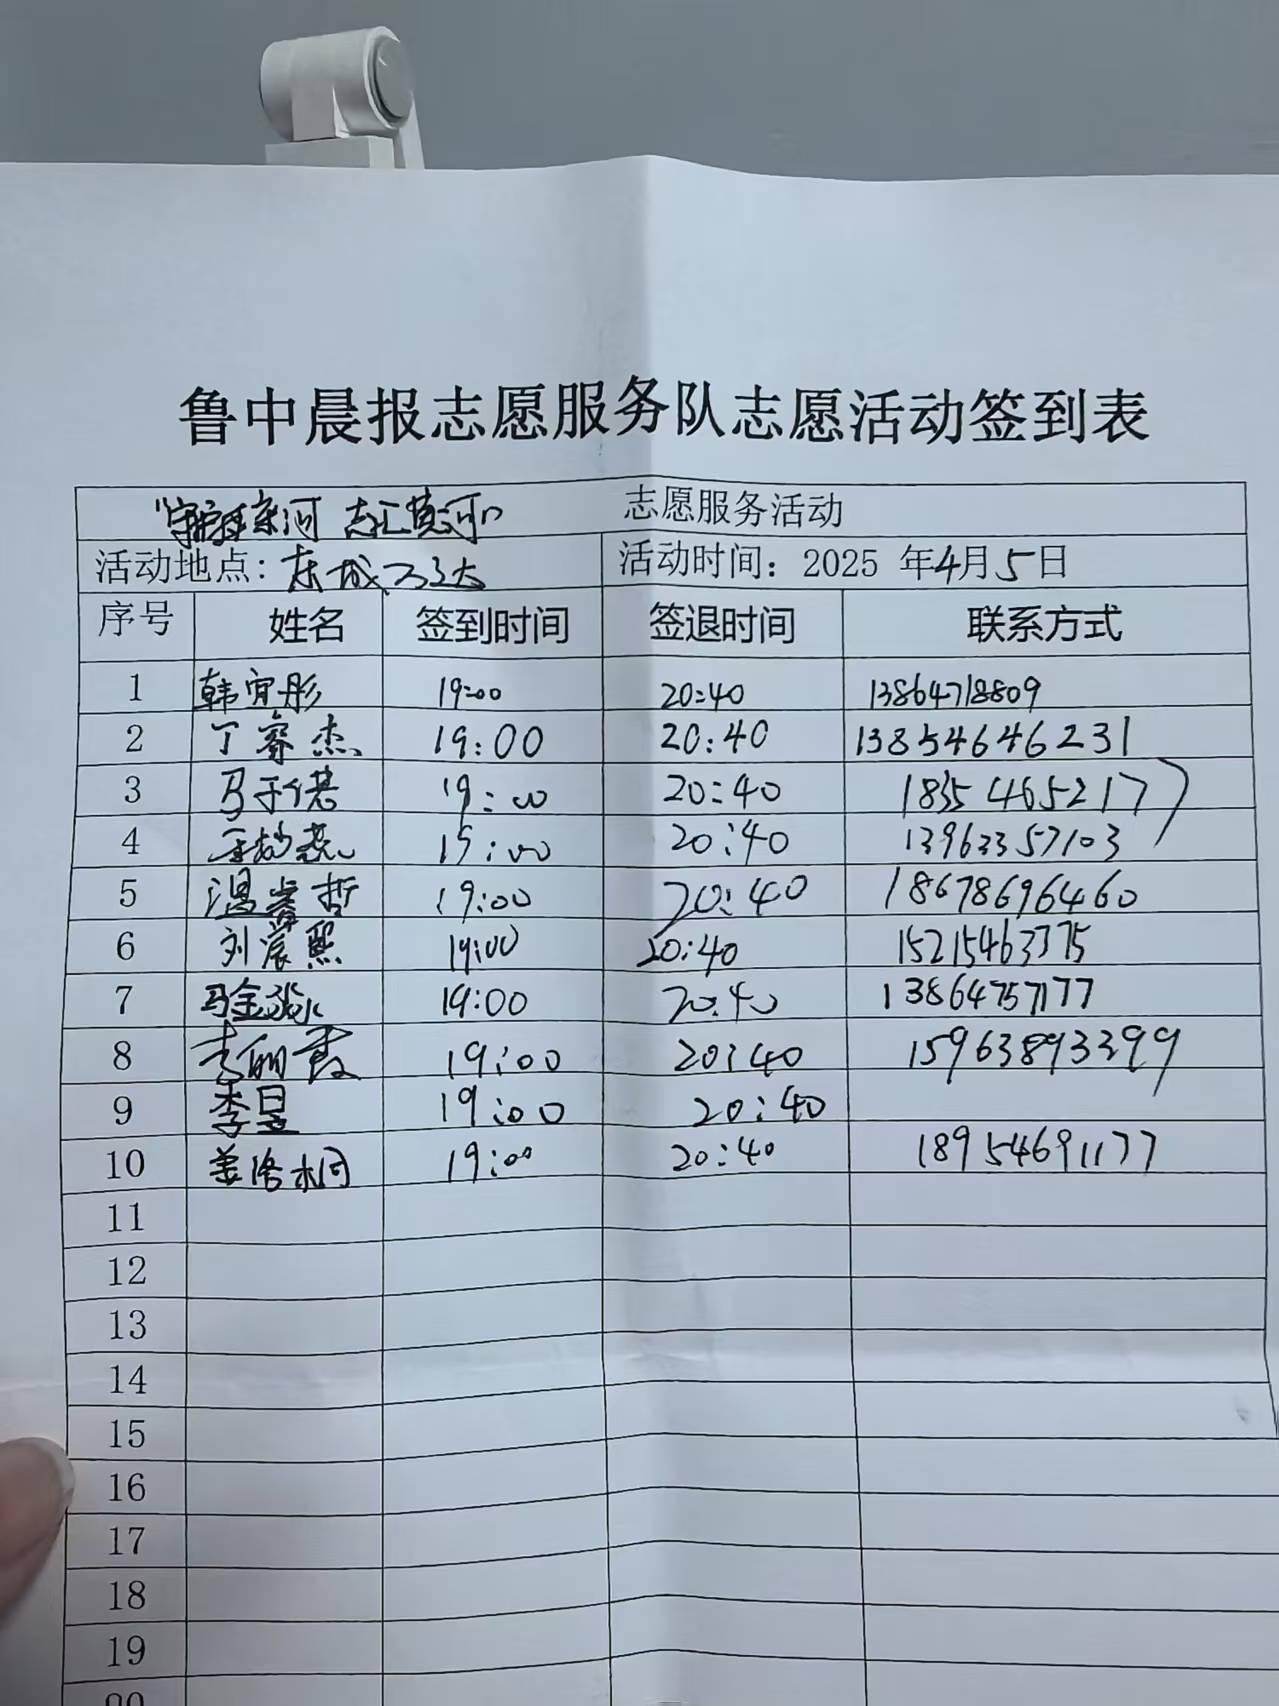 鲁中晨报志愿服务队志愿活动签到表
志汇黄河” 志愿服务活动
活动地点：东城万达 活动时间：2025 年4月5日
序号 姓名 签到时间 签退时间 联系方式
1 韩宜彤 19:00 20:40 13864718809
2 丁睿杰 19:00 20:40 13854646231
3 19:00 20:40 18354652177
4 20:40 13963357103
5 温睿哲 19:00 20:40 18678696460
6 刘宸熙 19:00 20:40 15215463375
7 19:00 20:40 13864757177
8 李丽霞 19:00 20:40 15963893399
9 李昱 19:00 20:40
10 19:00 20:40 18954691177
11
12
13
14
15
16
17
18
19
20